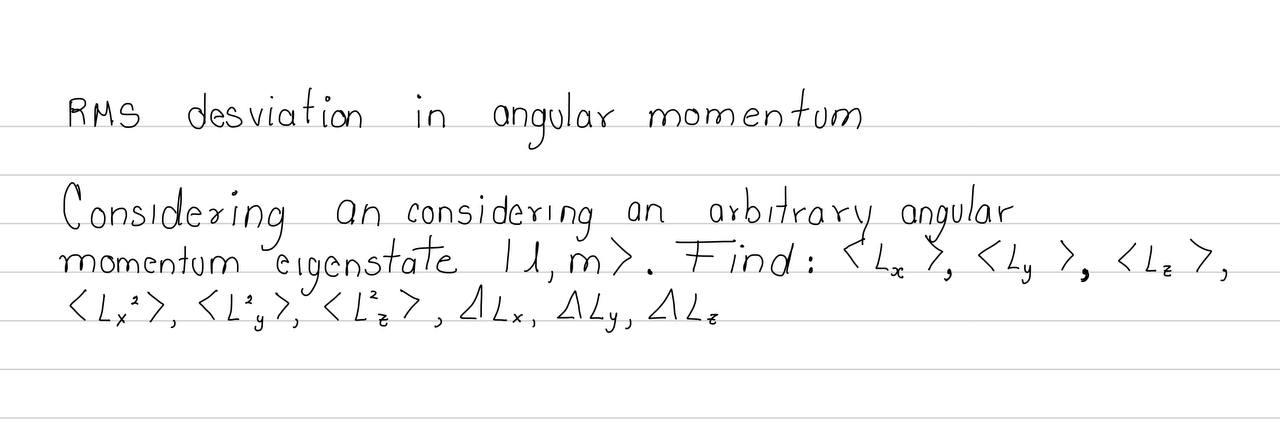 RMS desviation in angular momentum
Considering an considering an arbitrary angular
momentum eigenstate |l,m>. Find: <Lₓ>, <L_y>, <L_z>,
<Lₓ²>, <L²_y>, <L²_z>, ΔLₓ, ΔL_y, ΔL_z